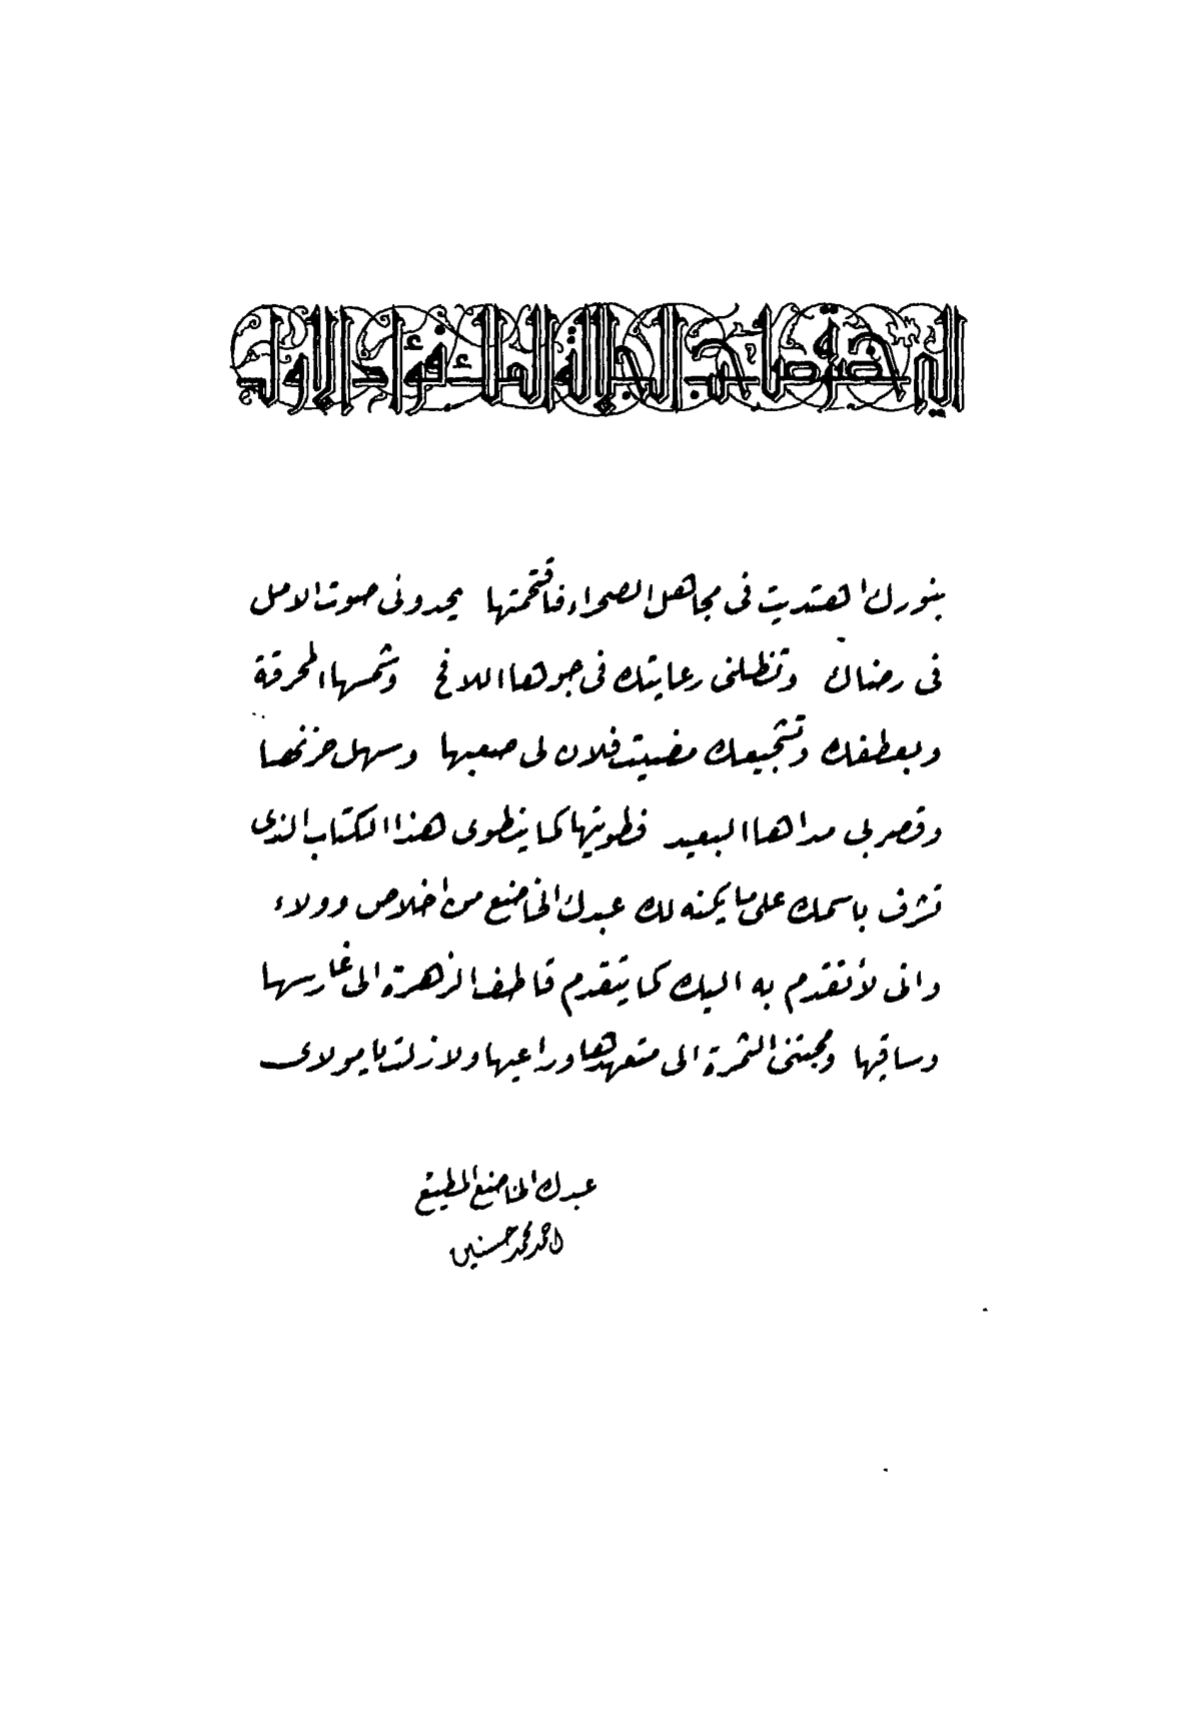 الى حضرة صاحب الجلالة الملك فؤاد الاول
بنورك اهتديت فى مجاهل الصحراء فاقتحمتها يحدونى صوت الامل
فى رضاك وتظلنى رعايتك فى جوها اللافح وشمسها المحرقة
وبعطفك وتشجيعك مضيت فلان لى صعبها وسهل حزنها
وقصر لى مداها البعيد فطويتها كما ينطوى هذا الكتاب الذى
تشرف باسمك على ما يكنه لك عبدك الخاضع من اخلاص وولاء
وانى لأتقدم به اليك كما يتقدم قاطف الزهرة الى غارسها
وساقيها ومجتنى الثمرة الى متعهدها وراعيها ولازلت يا مولاى
عبدك الخاضع المطيع
احمد محمد حسنين